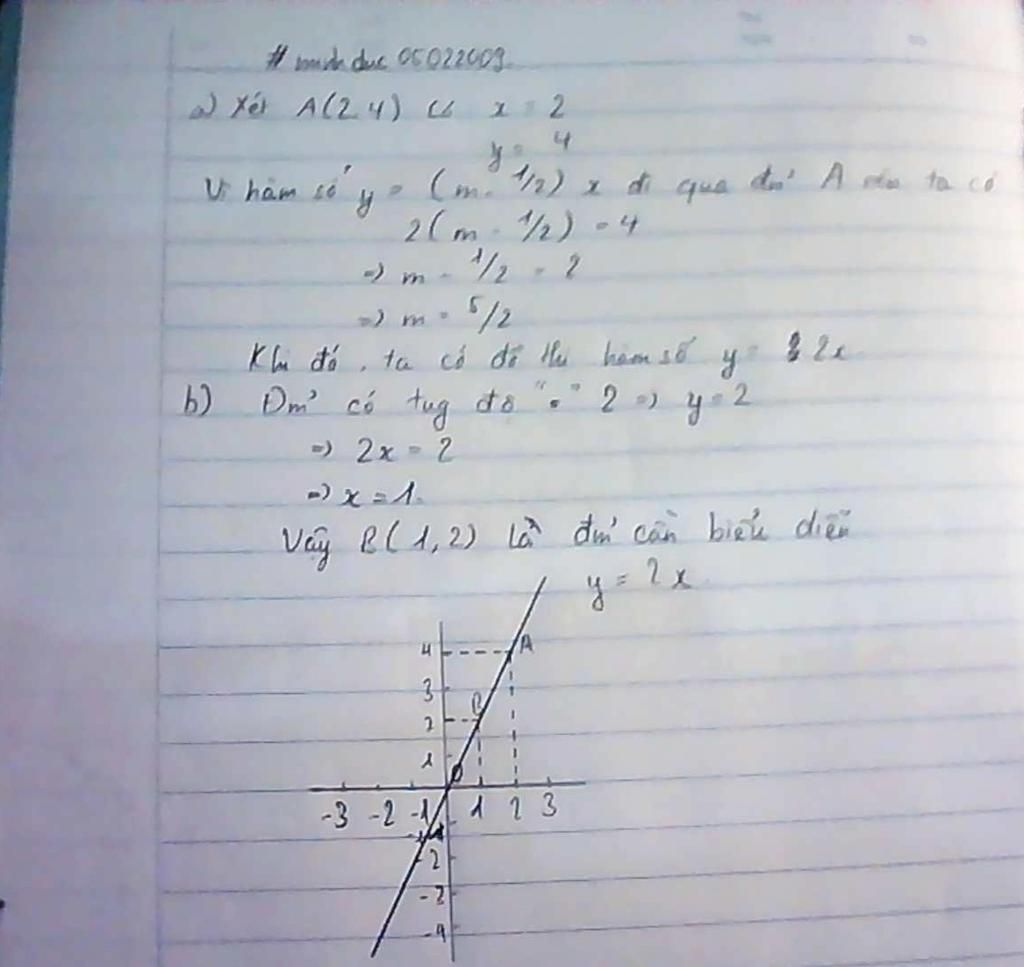 # minh duc 05022009
a) Xét A(2,4) có x = 2
y = 4
Vì hàm số y = (m - 1/2) x đi qua đm' A nên ta có
2(m - 1/2) = 4
=) m - 1/2 = 2
=) m = 5/2
Khi đó, ta có đồ thị hàm số y = 2x
b) Đm' có tug độ "=" 2 =) y = 2
=) 2x = 2
=) x = 1.
Vậy B(1,2) là đm' cần biểu diễn
y = 2x
4 A
3
2 B
1
O
-3 -2 -1 1 2 3
-1
-2
-3
-4